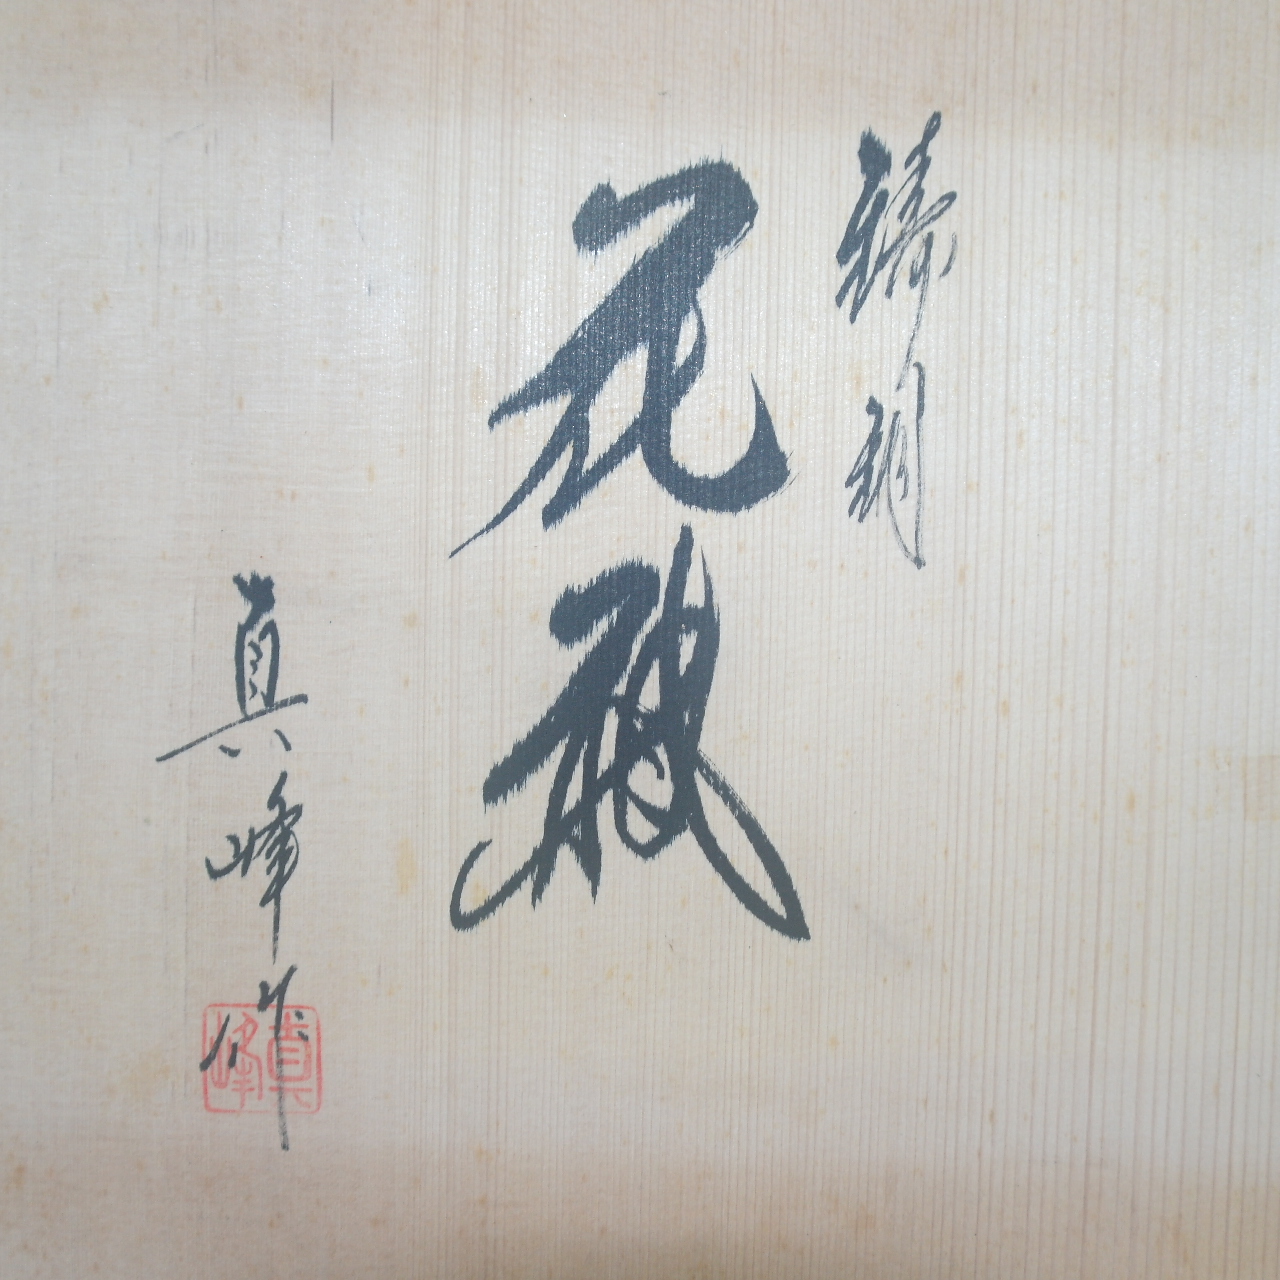 鋳銅
花瓶
真峰作
真峰